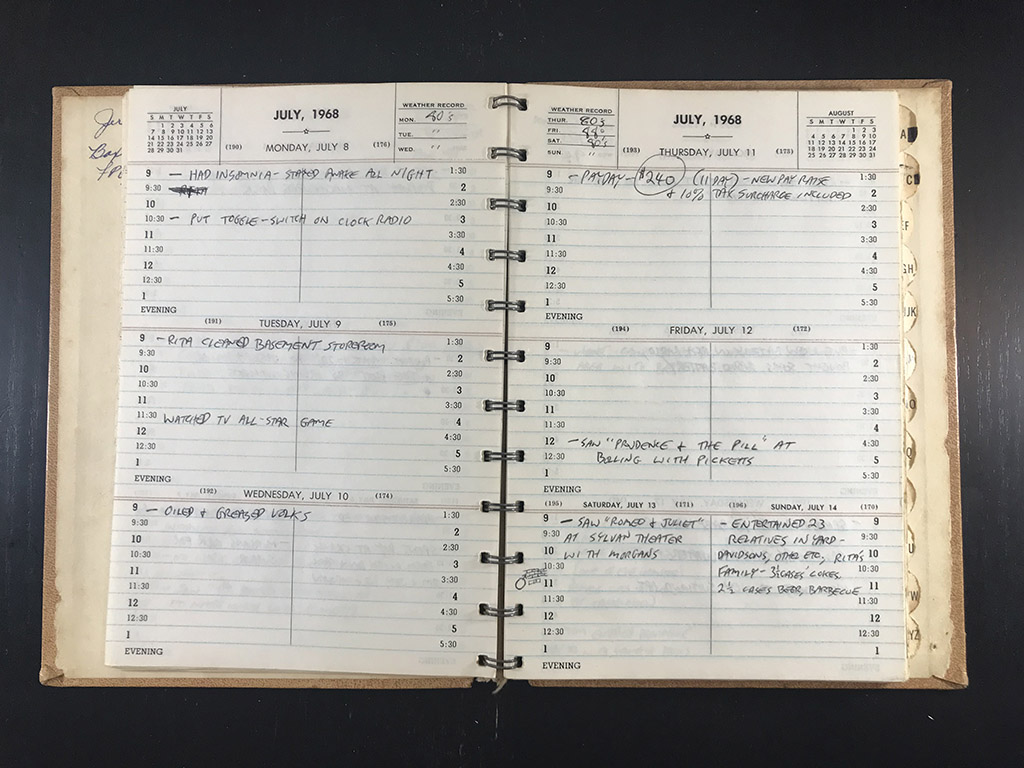 JULY
S M T W T F S
1 2 3 4 5 6
7 8 9 10 11 12 13
14 15 16 17 18 19 20
21 22 23 24 25 26 27
28 29 30 31
JULY, 1968
(190) MONDAY, JULY 8 (176)
WEATHER RECORD
MON. 80's
TUE. "
WED. "
9 — HAD INSOMNIA - STAYED AWAKE ALL NIGHT 1:30
9:30 2
10 2:30
10:30 — PUT TOGGLE-SWITCH ON CLOCK RADIO 3
11 3:30
11:30 4
12 4:30
12:30 5
1 5:30
EVENING
(191) TUESDAY, JULY 9 (175)
9 — RITA CLEANED BASEMENT STOREROOM 1:30
9:30 2
10 2:30
10:30 3
11 3:30
11:30 WATCHED TV ALL-STAR GAME 4
12 4:30
12:30 5
1 5:30
EVENING
(192) WEDNESDAY, JULY 10 (174)
9 — OILED & GREASED VOLKS 1:30
9:30 2
10 2:30
10:30 3
11 3:30
11:30 4
12 4:30
12:30 5
1 5:30
EVENING
WEATHER RECORD
THUR. 80's
FRI.
SAT. 80's
SUN. "
JULY, 1968
(193) THURSDAY, JULY 11 (173)
AUGUST
S M T W T F S
1 2 3
4 5 6 7 8 9 10
11 12 13 14 15 16 17
18 19 20 21 22 23 24
25 26 27 28 29 30 31
9 — PAYDAY - $240 (11 DAY) - NEW PAY RAISE 1:30
9:30 & 10% TAX SURCHARGE INCLUDED 2
10 2:30
10:30 3
11 3:30
11:30 4
12 4:30
12:30 5
1 5:30
EVENING
(194) FRIDAY, JULY 12 (172)
9 1:30
9:30 2
10 2:30
10:30 3
11 3:30
11:30 4
12 — SAW "PRUDENCE & THE PILL" AT 4:30
12:30 BOLLING WITH PICKETTS 5
1 5:30
EVENING
(195) SATURDAY, JULY 13 (171)
9 — SAW "ROMEO & JULIET"
9:30 AT SYLVAN THEATER
10 WITH MORGANS
10:30
11
11:30
12
12:30
1
EVENING
(196) SUNDAY, JULY 14 (170)
— ENTERTAINED 23 9
RELATIVES IN YARD - 9:30
DAVIDSONS, OTHO ETC, RITA'S 10
FAMILY - 3½ CASES' COKES, 10:30
2½ CASES BEER, BARBECUE 11
11:30
12
12:30
1
A
C
EF
GH
JK
O
Q
U
W
YZ